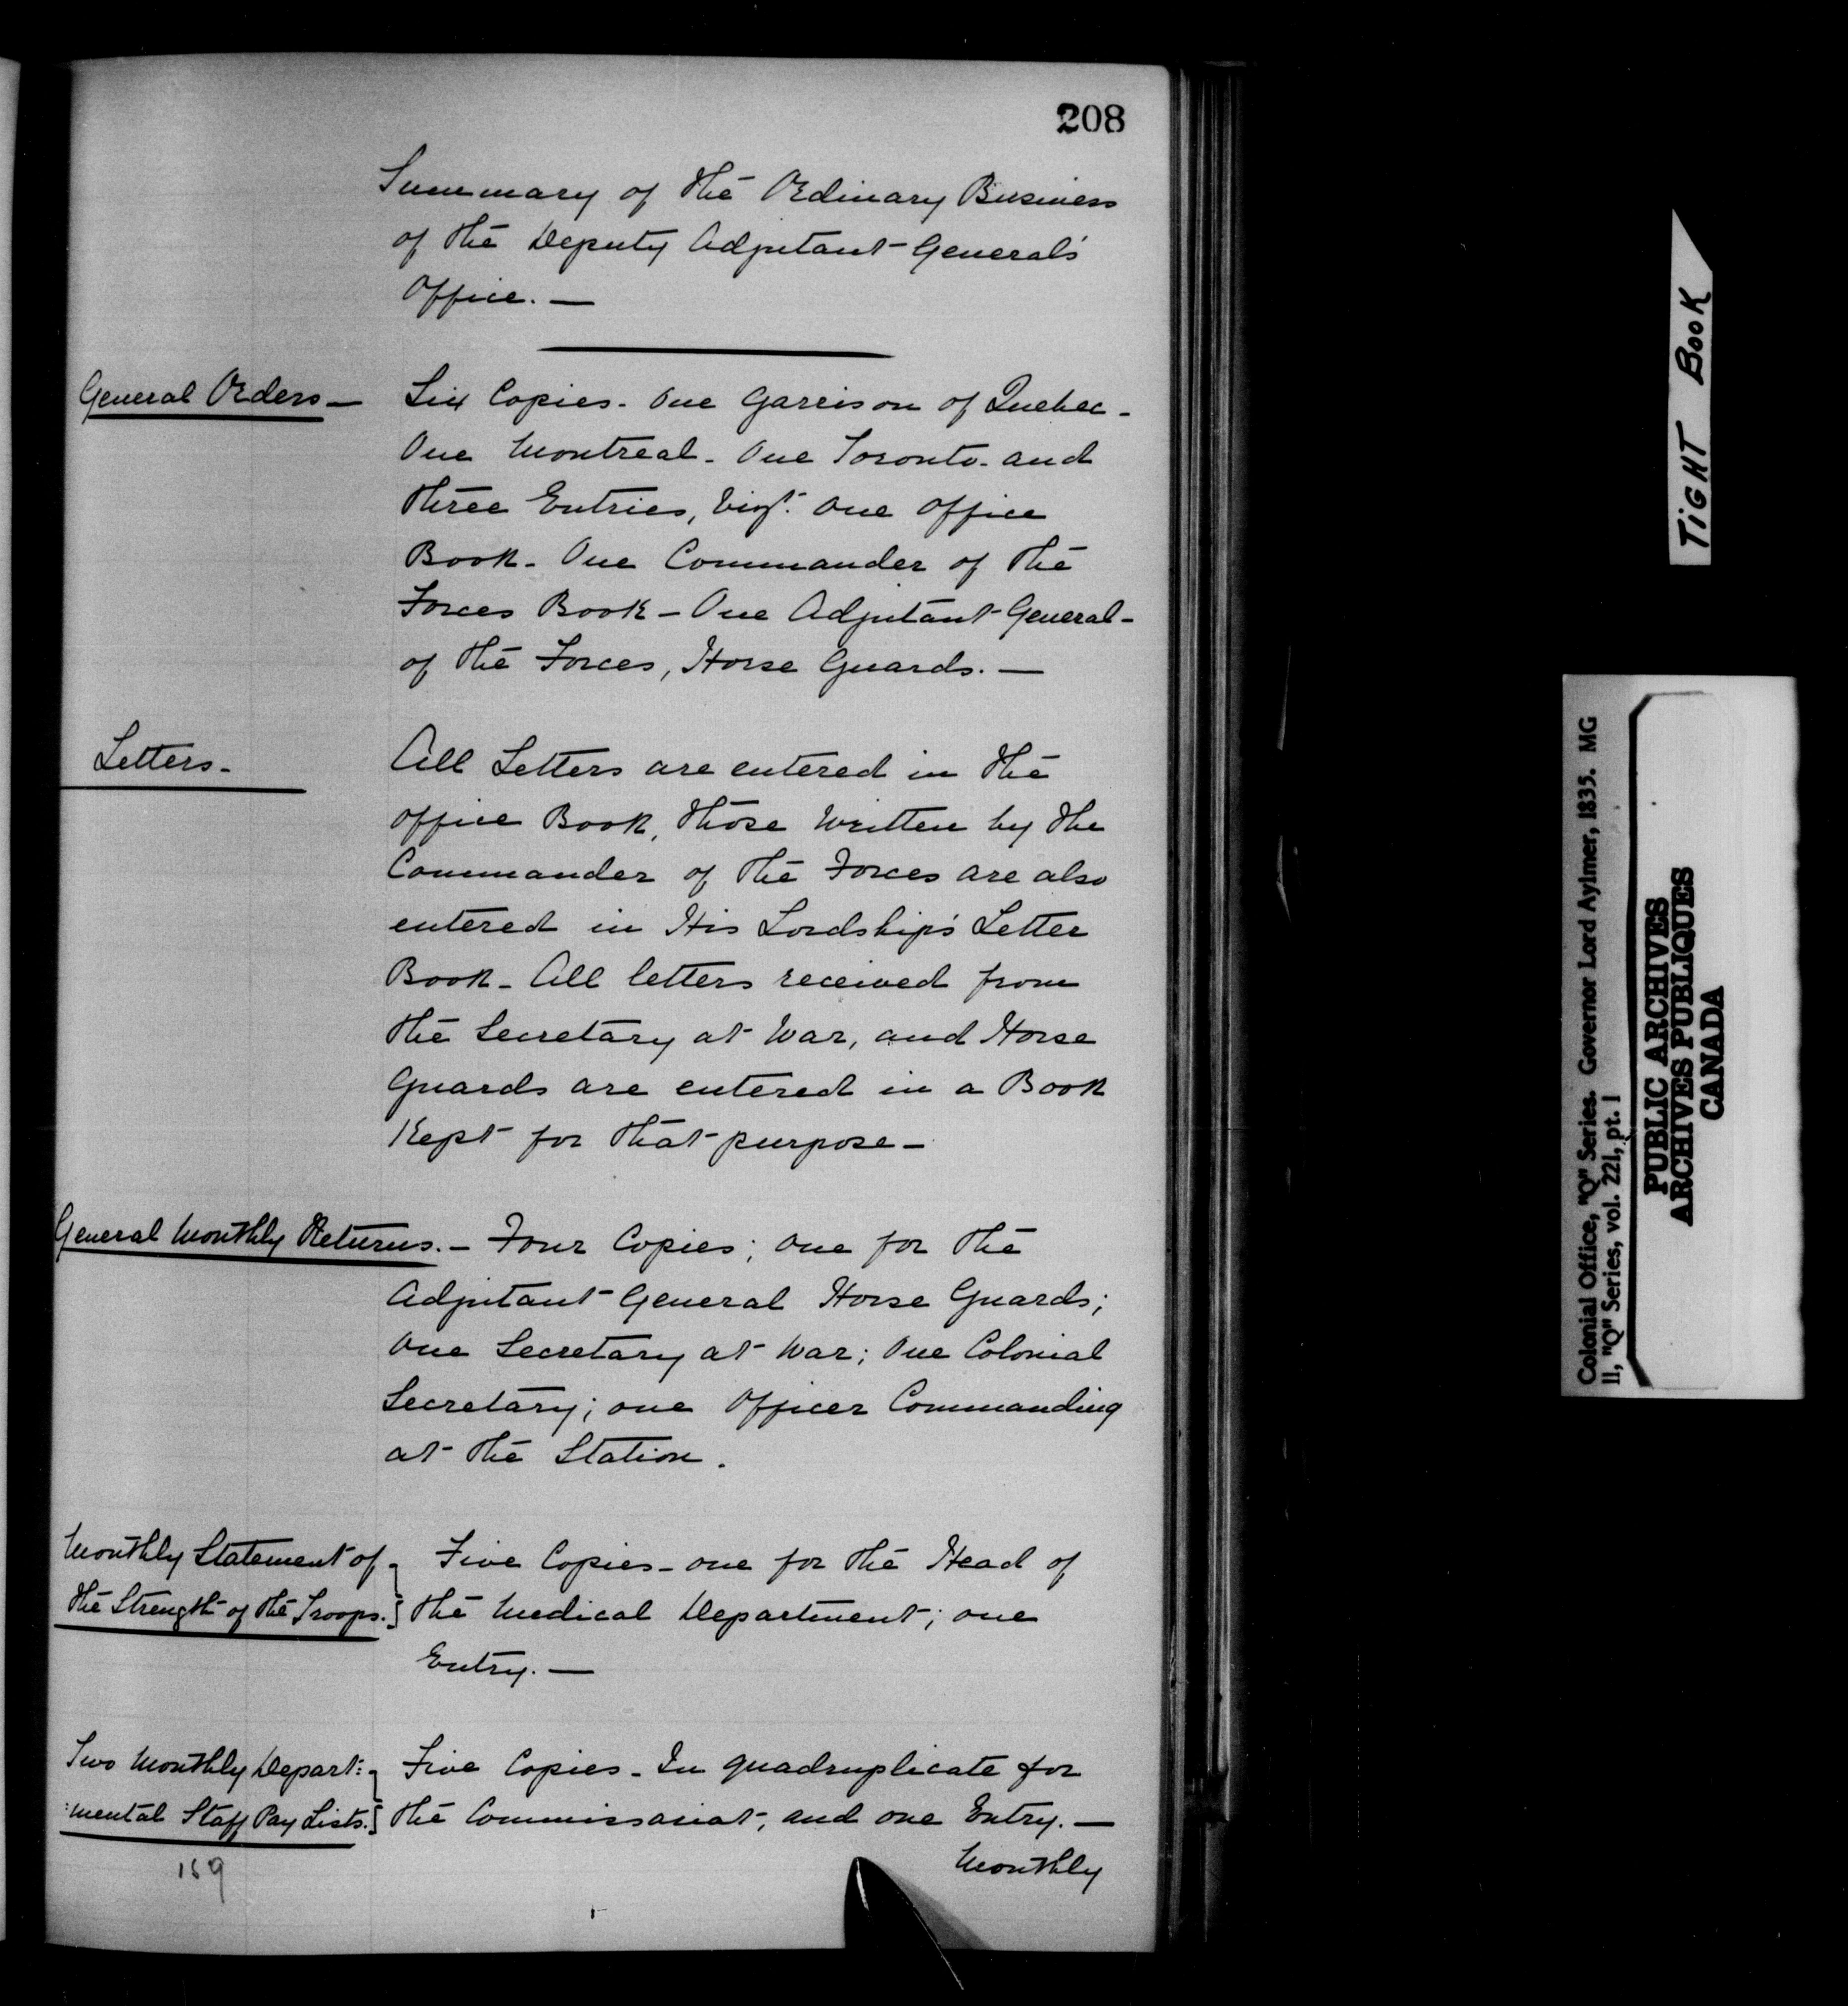 208
Summary of the Ordinary Business
of the Deputy Adjutant General's
Office. —
General Orders — Six Copies - One Garrison of Quebec -
One Montreal - One Toronto - and
three Entries, Vizt. One Office
Book - One Commander of the
Forces Book - One Adjutant General -
of the Forces, Horse Guards. —
Letters - All Letters are entered in the
Office Book, those written by the
Commander of the Forces are also
entered in His Lordship's Letter
Book - All letters received from
the Secretary at War, and Horse
Guards are entered in a Book
Kept for that purpose -
General Monthly Returns. - Four Copies; one for the
Adjutant General Horse Guards;
One Secretary at War; One Colonial
Secretary; one Officer Commanding
at the Station.
Monthly Statement of } Five Copies - one for the Head of
the Strength of the Troops. } the Medical Department; one
Entry. —
Two Monthly Depart: } Five Copies - In quadruplicate for
:mental Staff Pay Lists. } the Commissariat, and one Entry. —
Monthly
159
TIGHT BOOK
Colonial Office, "Q" Series. Governor Lord Aylmer, 1835. MG
11, "Q" Series, vol. 221, pt. 1
PUBLIC ARCHIVES
ARCHIVES PUBLIQUES
CANADA